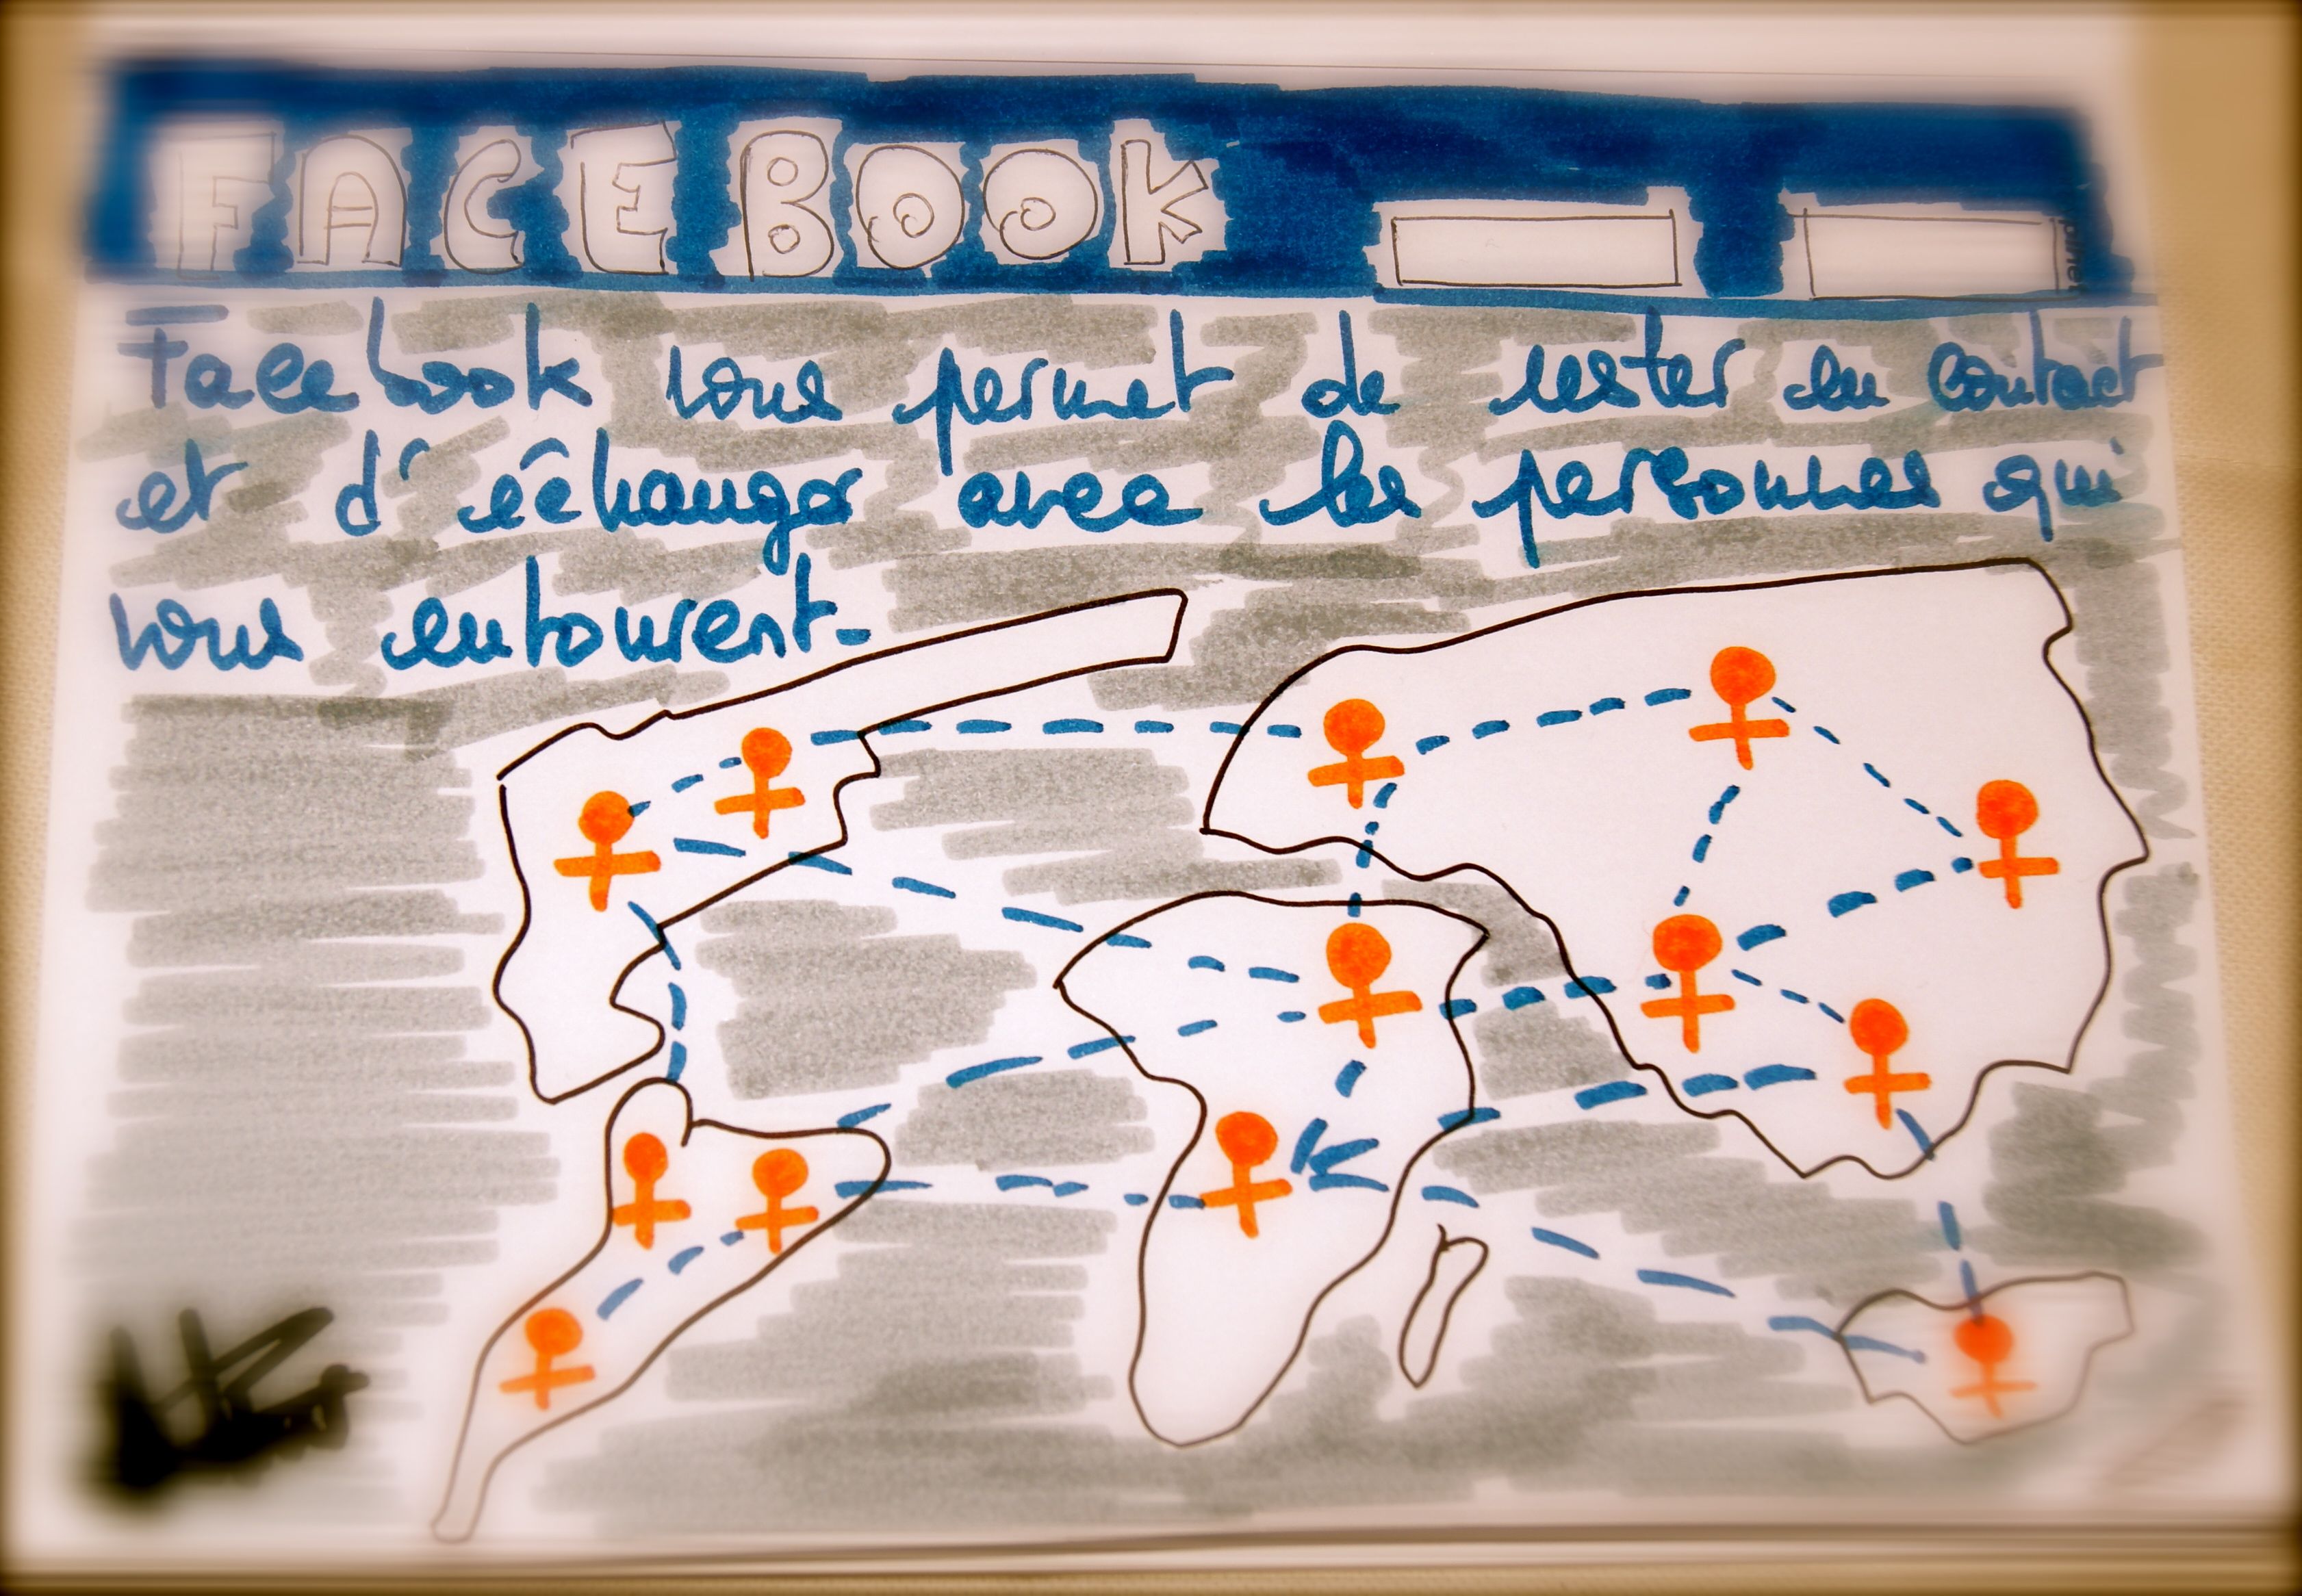 FACEBOOK
Facebook vous permet de rester en contact
et d'échanger avec les personnes qui
vous entourent.